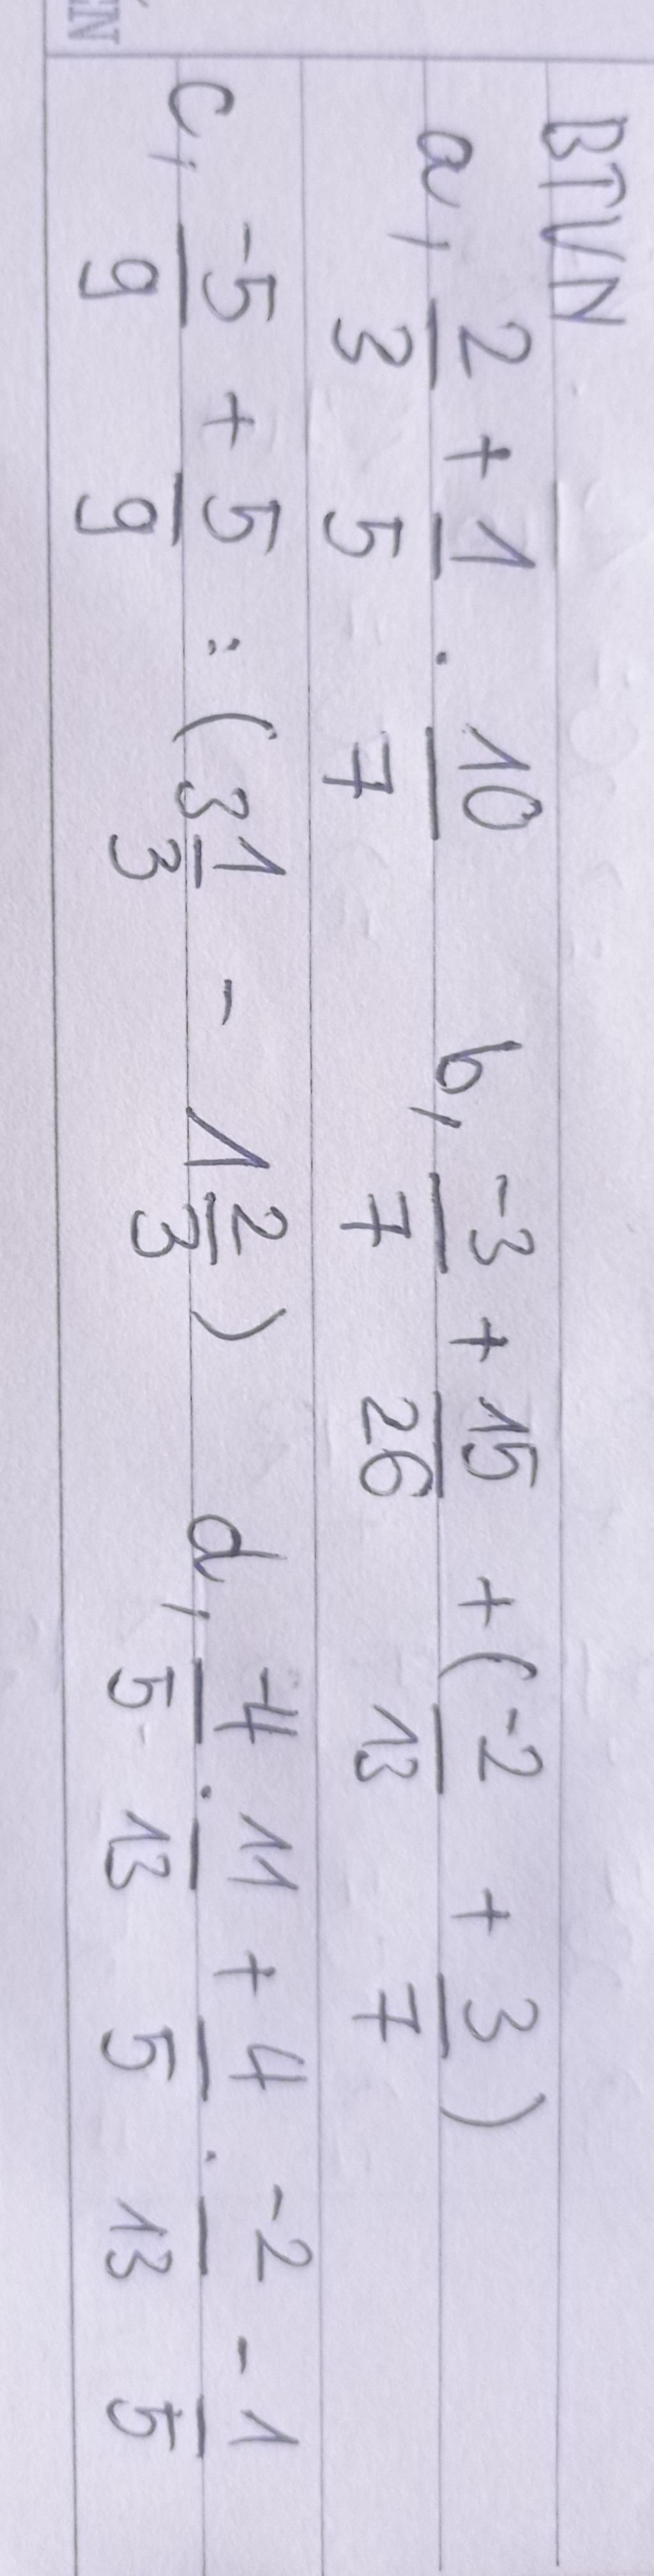 BTVN
a, 2/3 + 1/5 . 10/7 b, -3/7 + 15/26 + (-2/13 + 3/7)
c, -5/9 + 5/9 : (3 1/3 - 1 2/3) d, -4/5 . 11/13 + 4/5 . -2/13 - 1/5